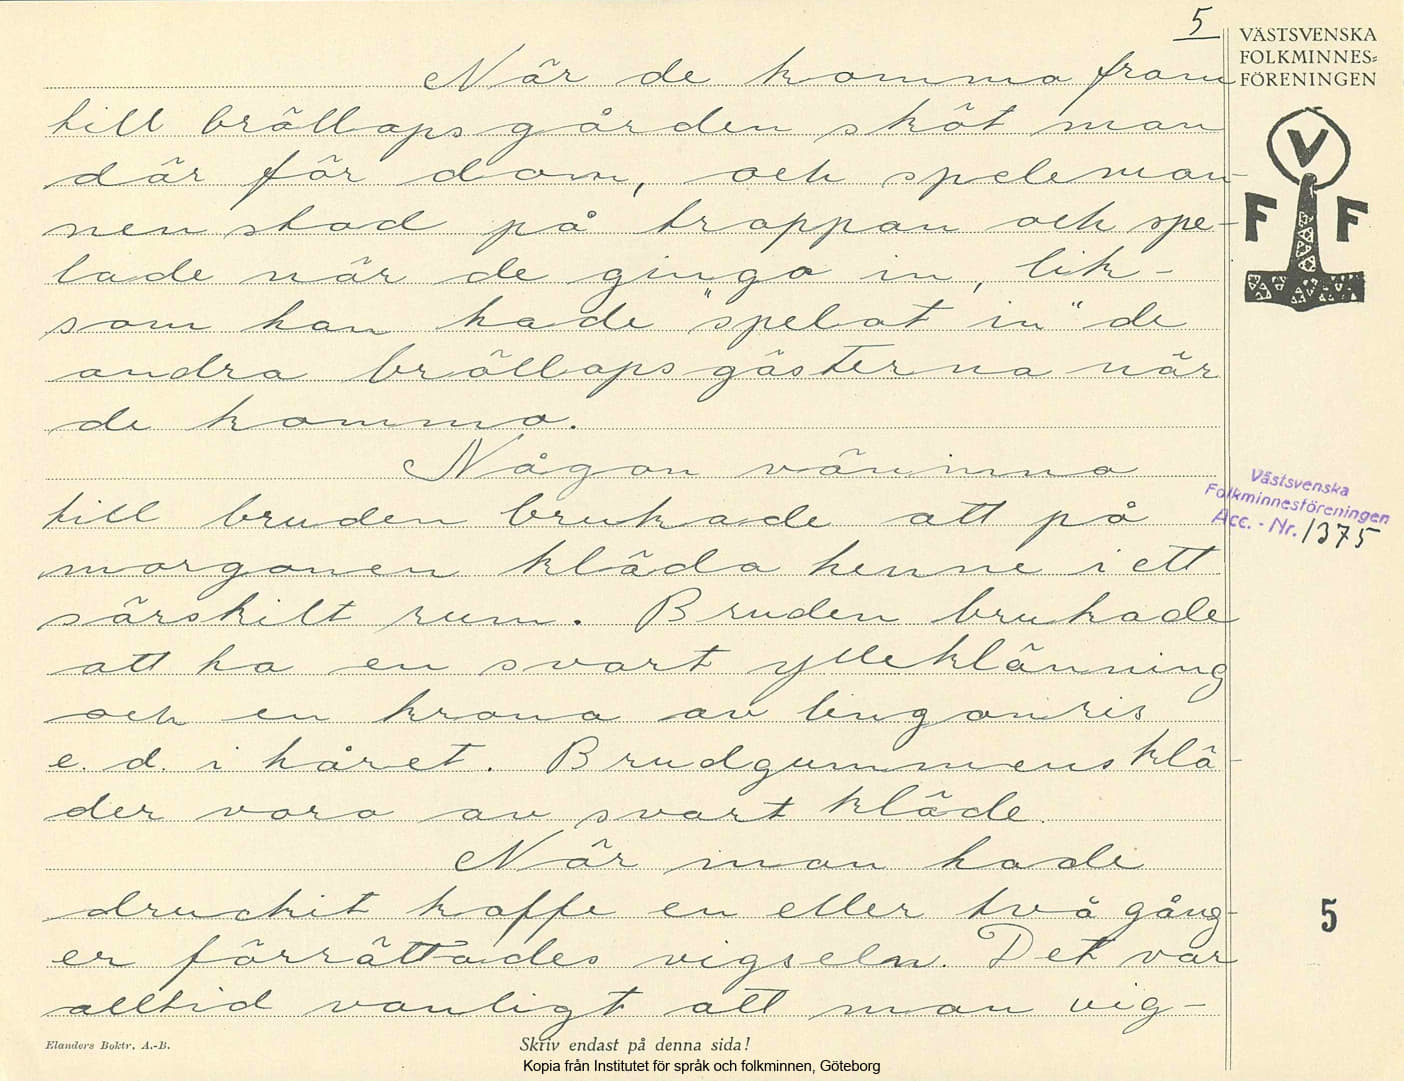 5
VÄSTSVENSKA
FOLKMINNES=
FÖRENINGEN
V
F F
När de komma fram
till bröllopsgården sköt man
där för dom, och speleman-
nen stod på trappan och spe-
lade när de gingo in, lik-
som han hade "spelat in" de
andra bröllopsgästerna när
de kommo.
Någon väninna
till bruden brukade att på
morgonen kläda henne i ett
särskilt rum. Bruden brukade
att ha en svart ylleklänning
och en krona av lingonris
e. d. i håret. Brudgummens klä-
der voro av svart kläde.
När man hade
druckit kaffe en eller två gång-
er förrättades vigseln. Det var
alltid vanligt att man vig-
Västsvenska
Folkminnesföreningen
Acc. - Nr. 1375
5
Elanders Boktr. A.-B.
Skriv endast på denna sida!
Kopia från Institutet för språk och folkminnen, Göteborg